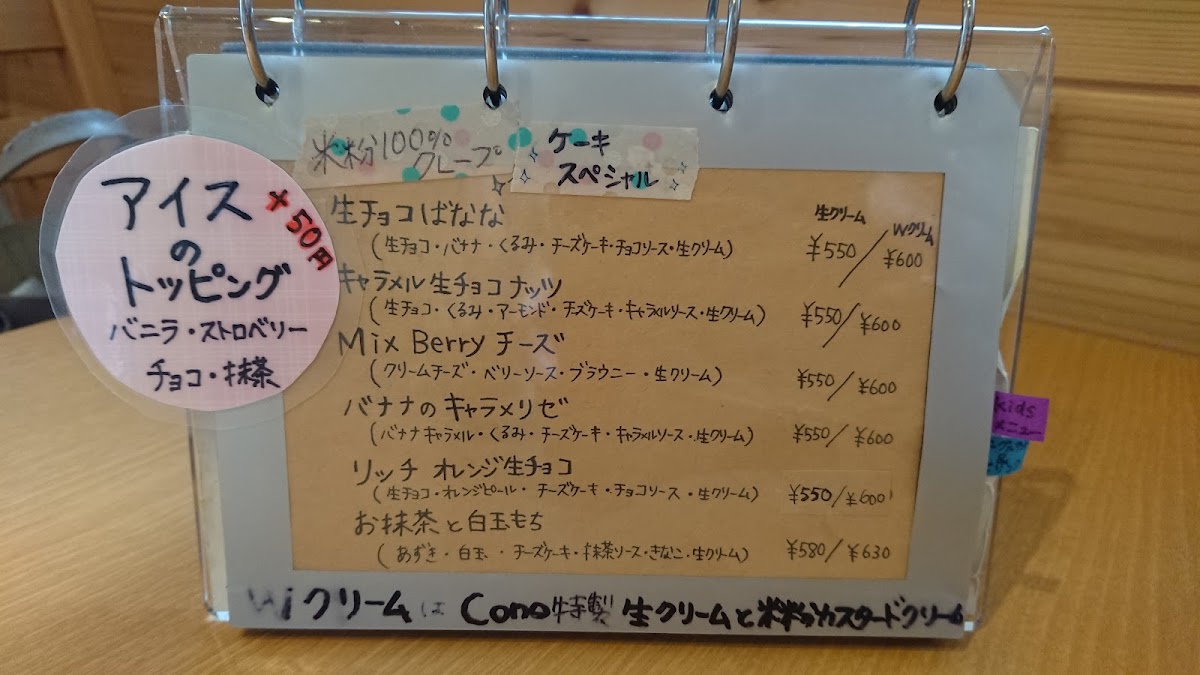 米粉100%
クレープ
ケーキ
スペシャル
アイス
の
トッピング
+50円
バニラ・ストロベリー
チョコ・抹茶
生クリーム
Wクリーム
生チョコばなな
(生チョコ・バナナ・くるみ・チーズケーキ・チョコソース・生クリーム) ¥550/¥600
キャラメル生チョコナッツ
(生チョコ・くるみ・アーモンド・チーズケーキ・キャラメルソース・生クリーム) ¥550/¥600
Mix Berry チーズ
(クリームチーズ・ベリーソース・ブラウニー・生クリーム) ¥550/¥600
バナナのキャラメリゼ
(バナナキャラメル・くるみ・チーズケーキ・キャラメルソース・生クリーム) ¥550/¥600
リッチ オレンジ生チョコ
(生チョコ・オレンジピール・チーズケーキ・チョコソース・生クリーム) ¥550/¥600
お抹茶と白玉もち
(あずき・白玉・チーズケーキ・抹茶ソース・きなこ・生クリーム) ¥580/¥630
クリームは Cono特製 生クリームと米粉カスタードクリーム
kids
メニュー